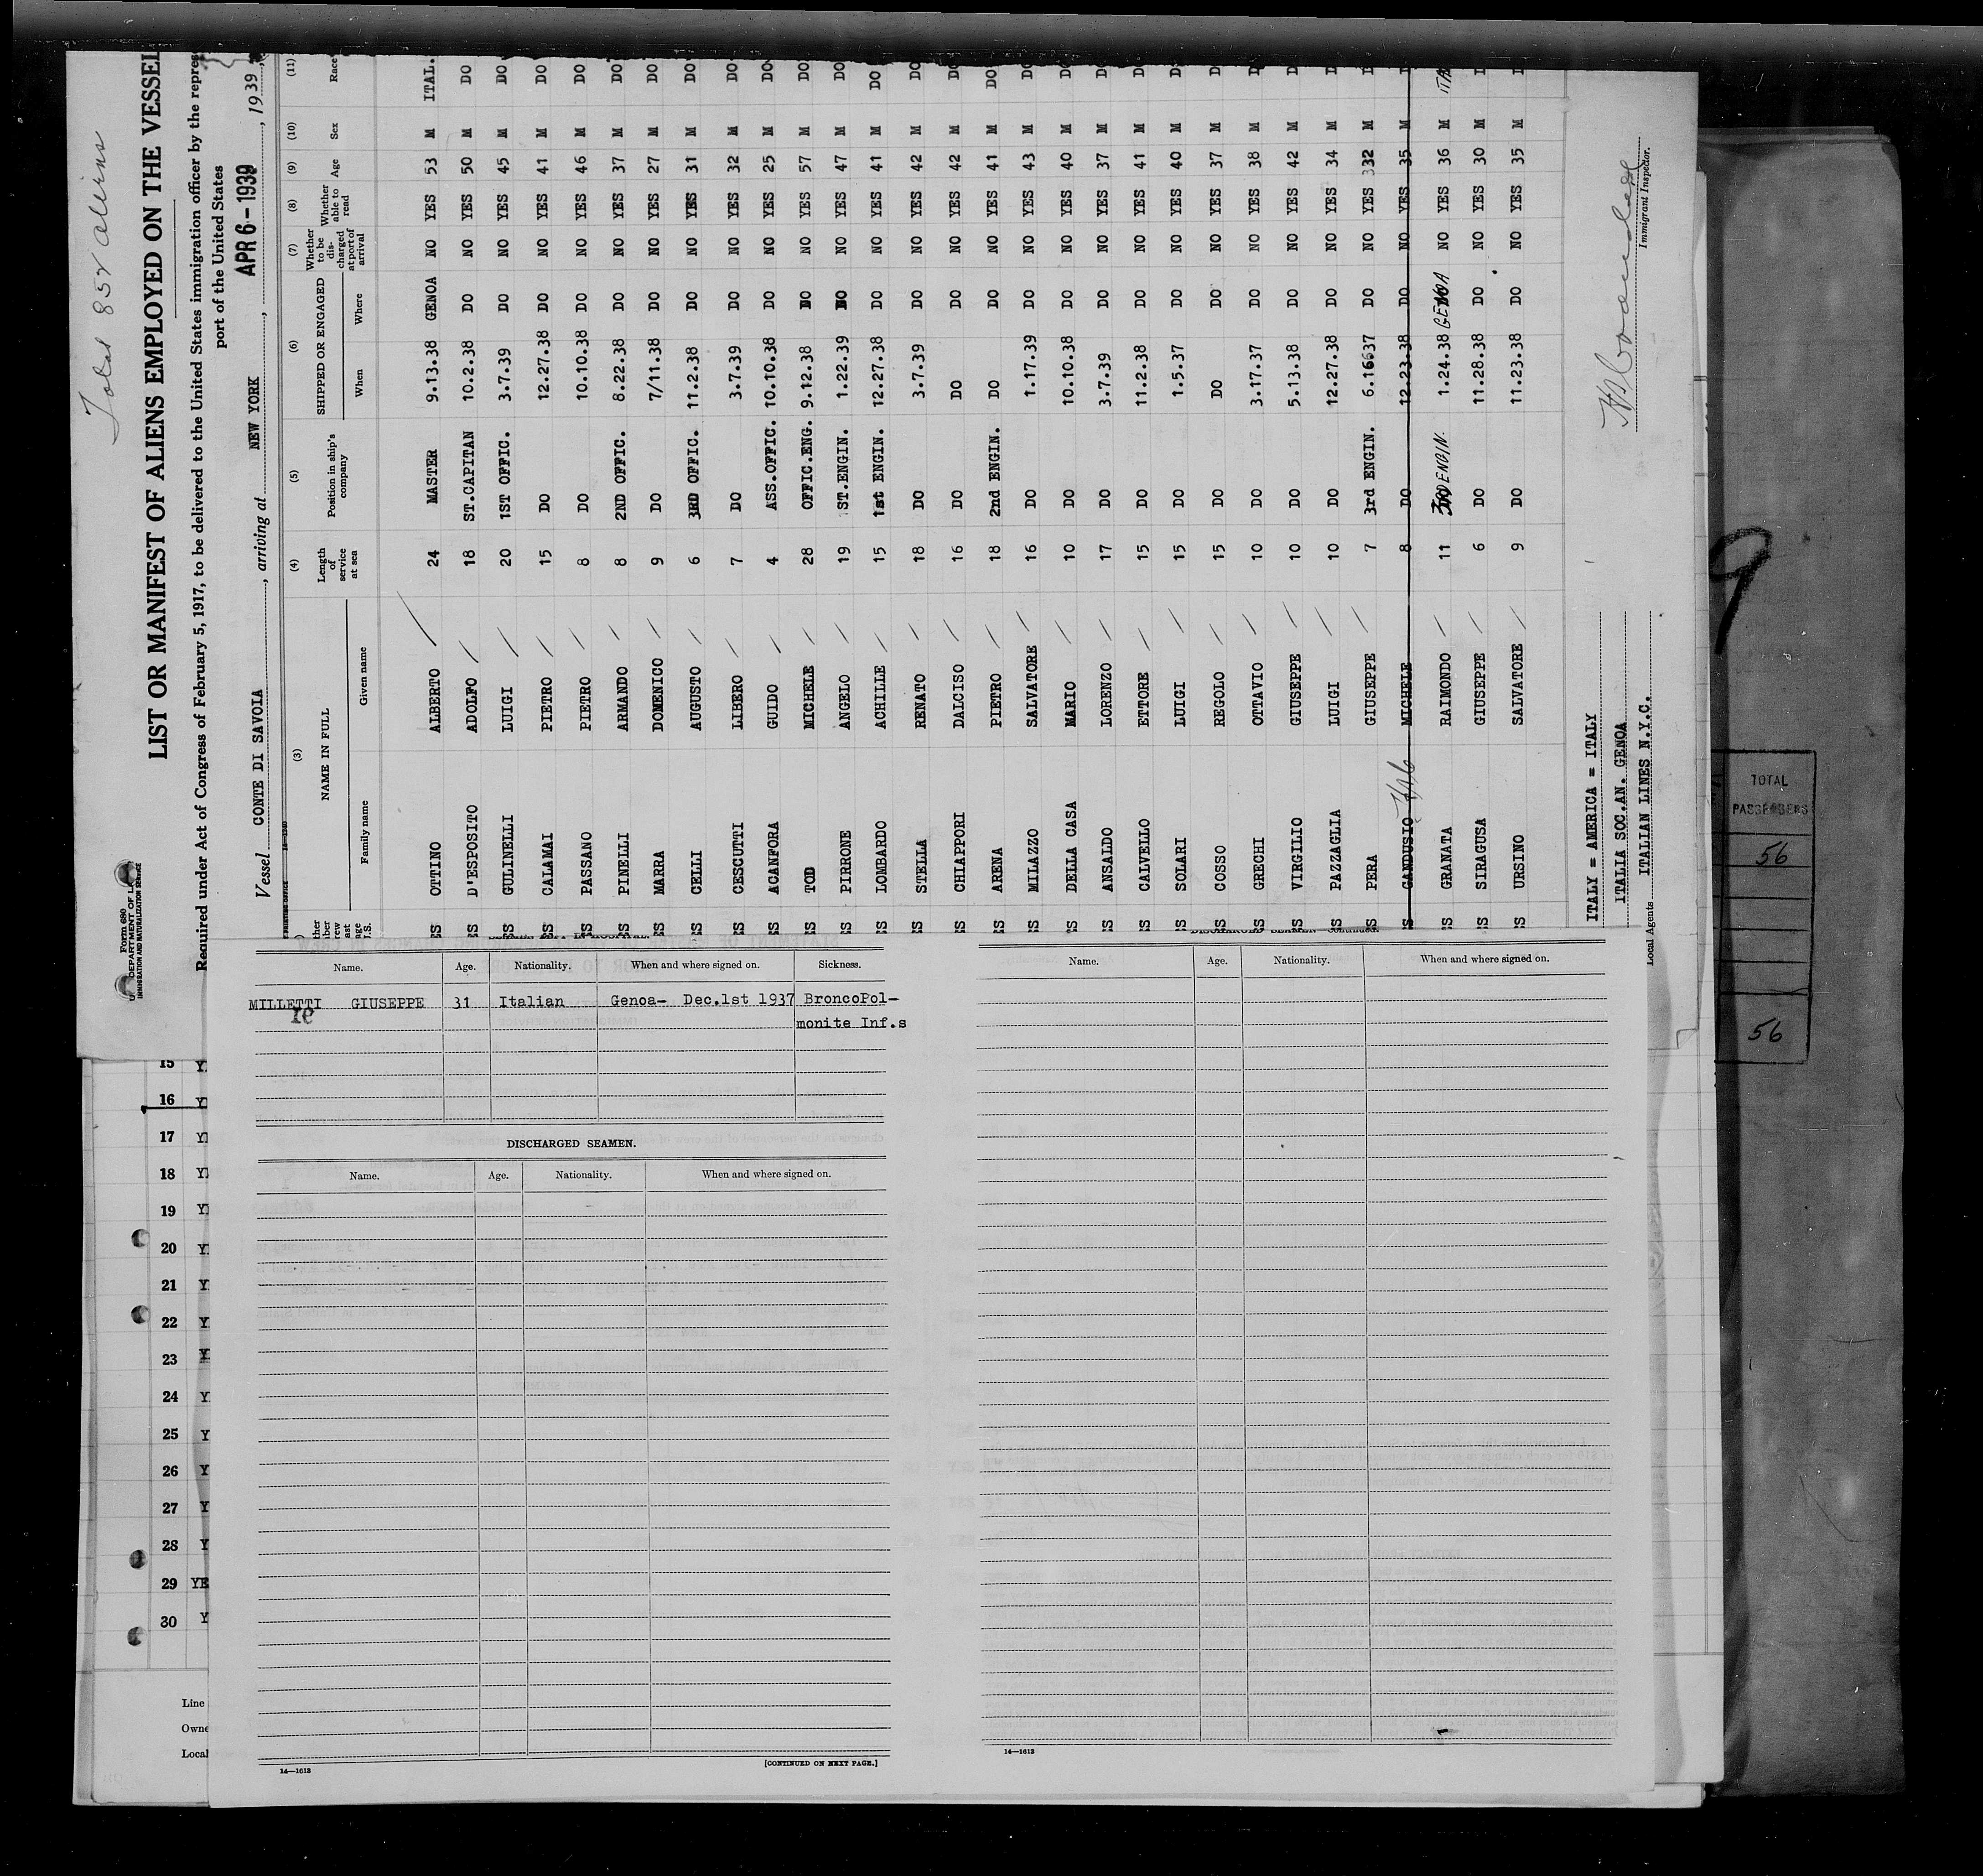 Total 852 aliens
Form 680
DEPARTMENT OF
IMMIGRATION AND NATURALIZATION SERVICE
LIST OR MANIFEST OF ALIENS EMPLOYED ON THE VESSEL
Required under Act of Congress of February 5, 1917, to be delivered to the United States immigration officer by the repres
port of the United States
Vessel CONTE DI SAVOIA, arriving at NEW YORK, APR 6 - 1939, 1939
(3) (4) (5) (6) (7) (8) (9) (10) (11)
NAME IN FULL Length of service at sea Position in ship's company SHIPPED OR ENGAGED Whether to be discharged at port of arrival Whether able to read Age Sex Race
Family name Given name When Where
OTTINO ALBERTO 24 MASTER 9.13.38 GENOA NO YES 53 M ITAL.
D'ESPOSITO ADOLFO 18 ST.CAPITAN 10.2.38 DO NO YES 50 M DO
GULINELLI LUIGI 20 1ST OFFIC. 3.7.39 DO NO YES 45 M DO
CALAMAI PIETRO 15 DO 12.27.38 DO NO YES 41 M DO
PASSANO PIETRO 8 DO 10.10.38 DO NO YES 46 M DO
PINELLI ARMANDO 8 2ND OFFIC. 8.22.38 DO NO YES 37 M DO
MARRA DOMENICO 9 DO 7/11.38 DO NO YES 27 M DO
CELLI AUGUSTO 6 3RD OFFIC. 11.2.38 DO NO YES 31 M DO
CESCUTTI LIBERO 7 DO 3.7.39 DO NO YES 32 M DO
ACANFORA GUIDO 4 ASS.OFFIC. 10.10.38 DO NO YES 25 M DO
TOD MICHELE 28 OFFIC.ENG. 9.12.38 DO NO YES 57 M DO
PIRRONE ANGELO 19 ST.ENGIN. 1.22.39 DO NO YES 47 M DO
LOMBARDO ACHILLE 15 1st ENGIN. 12.27.38 DO NO YES 41 M DO
STELLA RENATO 18 DO 3.7.39 DO NO YES 42 M DO
CHIAPPORI DALCISO 16 DO DO DO NO YES 42 M DO
ARENA PIETRO 18 2nd ENGIN. DO DO NO YES 41 M DO
MILAZZO SALVATORE 16 DO 1.17.39 DO NO YES 43 M DO
DELLA CASA MARIO 10 DO 10.10.38 DO NO YES 40 M DO
ANSALDO LORENZO 17 DO 3.7.39 DO NO YES 37 M DO
CALVELLO ETTORE 15 DO 11.2.38 DO NO YES 41 M DO
SOLARI LUIGI 15 DO 1.5.37 DO NO YES 40 M D
COSSO REGOLO 15 DO DO DO NO YES 37 M D
GRECHI OTTAVIO 10 DO 3.17.37 DO NO YES 38 M D
VIRGILIO GIUSEPPE 10 DO 5.13.38 DO NO YES 42 M D
PAZZAGLIA LUIGI 10 DO 12.27.38 DO NO YES 34 M D
PERA GIUSEPPE 7 3rd ENGIN. 6.16637 DO NO YES 332 M D
GANDUSIO MICHELE 8 DO 12.23.38 DO NO YES 35 M D
GRANATA RAIMONDO 11 3RD ENGIN. 1.24.38 GENOA NO YES 36 M ITA
SIRAGUSA GIUSEPPE 6 DO 11.28.38 DO NO YES 30 M D
URSINO SALVATORE 9 DO 11.23.38 DO NO YES 35 M D
ITALY = AMERICA = ITALY
ITALIA SOC.AN. GENOA
Local Agents ITALIAN LINES N.Y.C.
Immigrant Inspector.
9
TOTAL
PASSENGERS
56
56
Name. Age. Nationality. When and where signed on. Sickness.
MILLETTI GIUSEPPE 31 Italian Genoa- Dec.1st 1937 BroncoPol-
monite Inf.s
DISCHARGED SEAMEN.
Name. Age. Nationality. When and where signed on.
14—1613
[CONTINUED ON NEXT PAGE.]
Name. Age. Nationality. When and where signed on.
14—1613
15 Y
16 Y
17 Y
18 Y
19 Y
20 Y
21 Y
22 Y
23 Y
24 Y
25 Y
26 Y
27 Y
28 Y
29 YE
30 Y
Line
Owne
Local